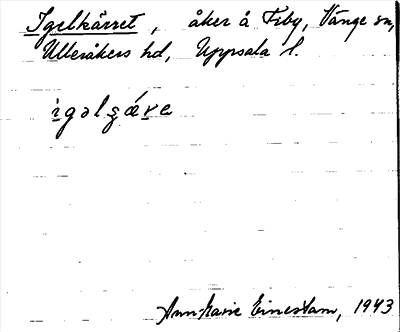 Igelkärret, åker å Freby, Vänge sn,
Ulleråkers hd, Uppsala l.
Ann-Marie Einestam, 1943